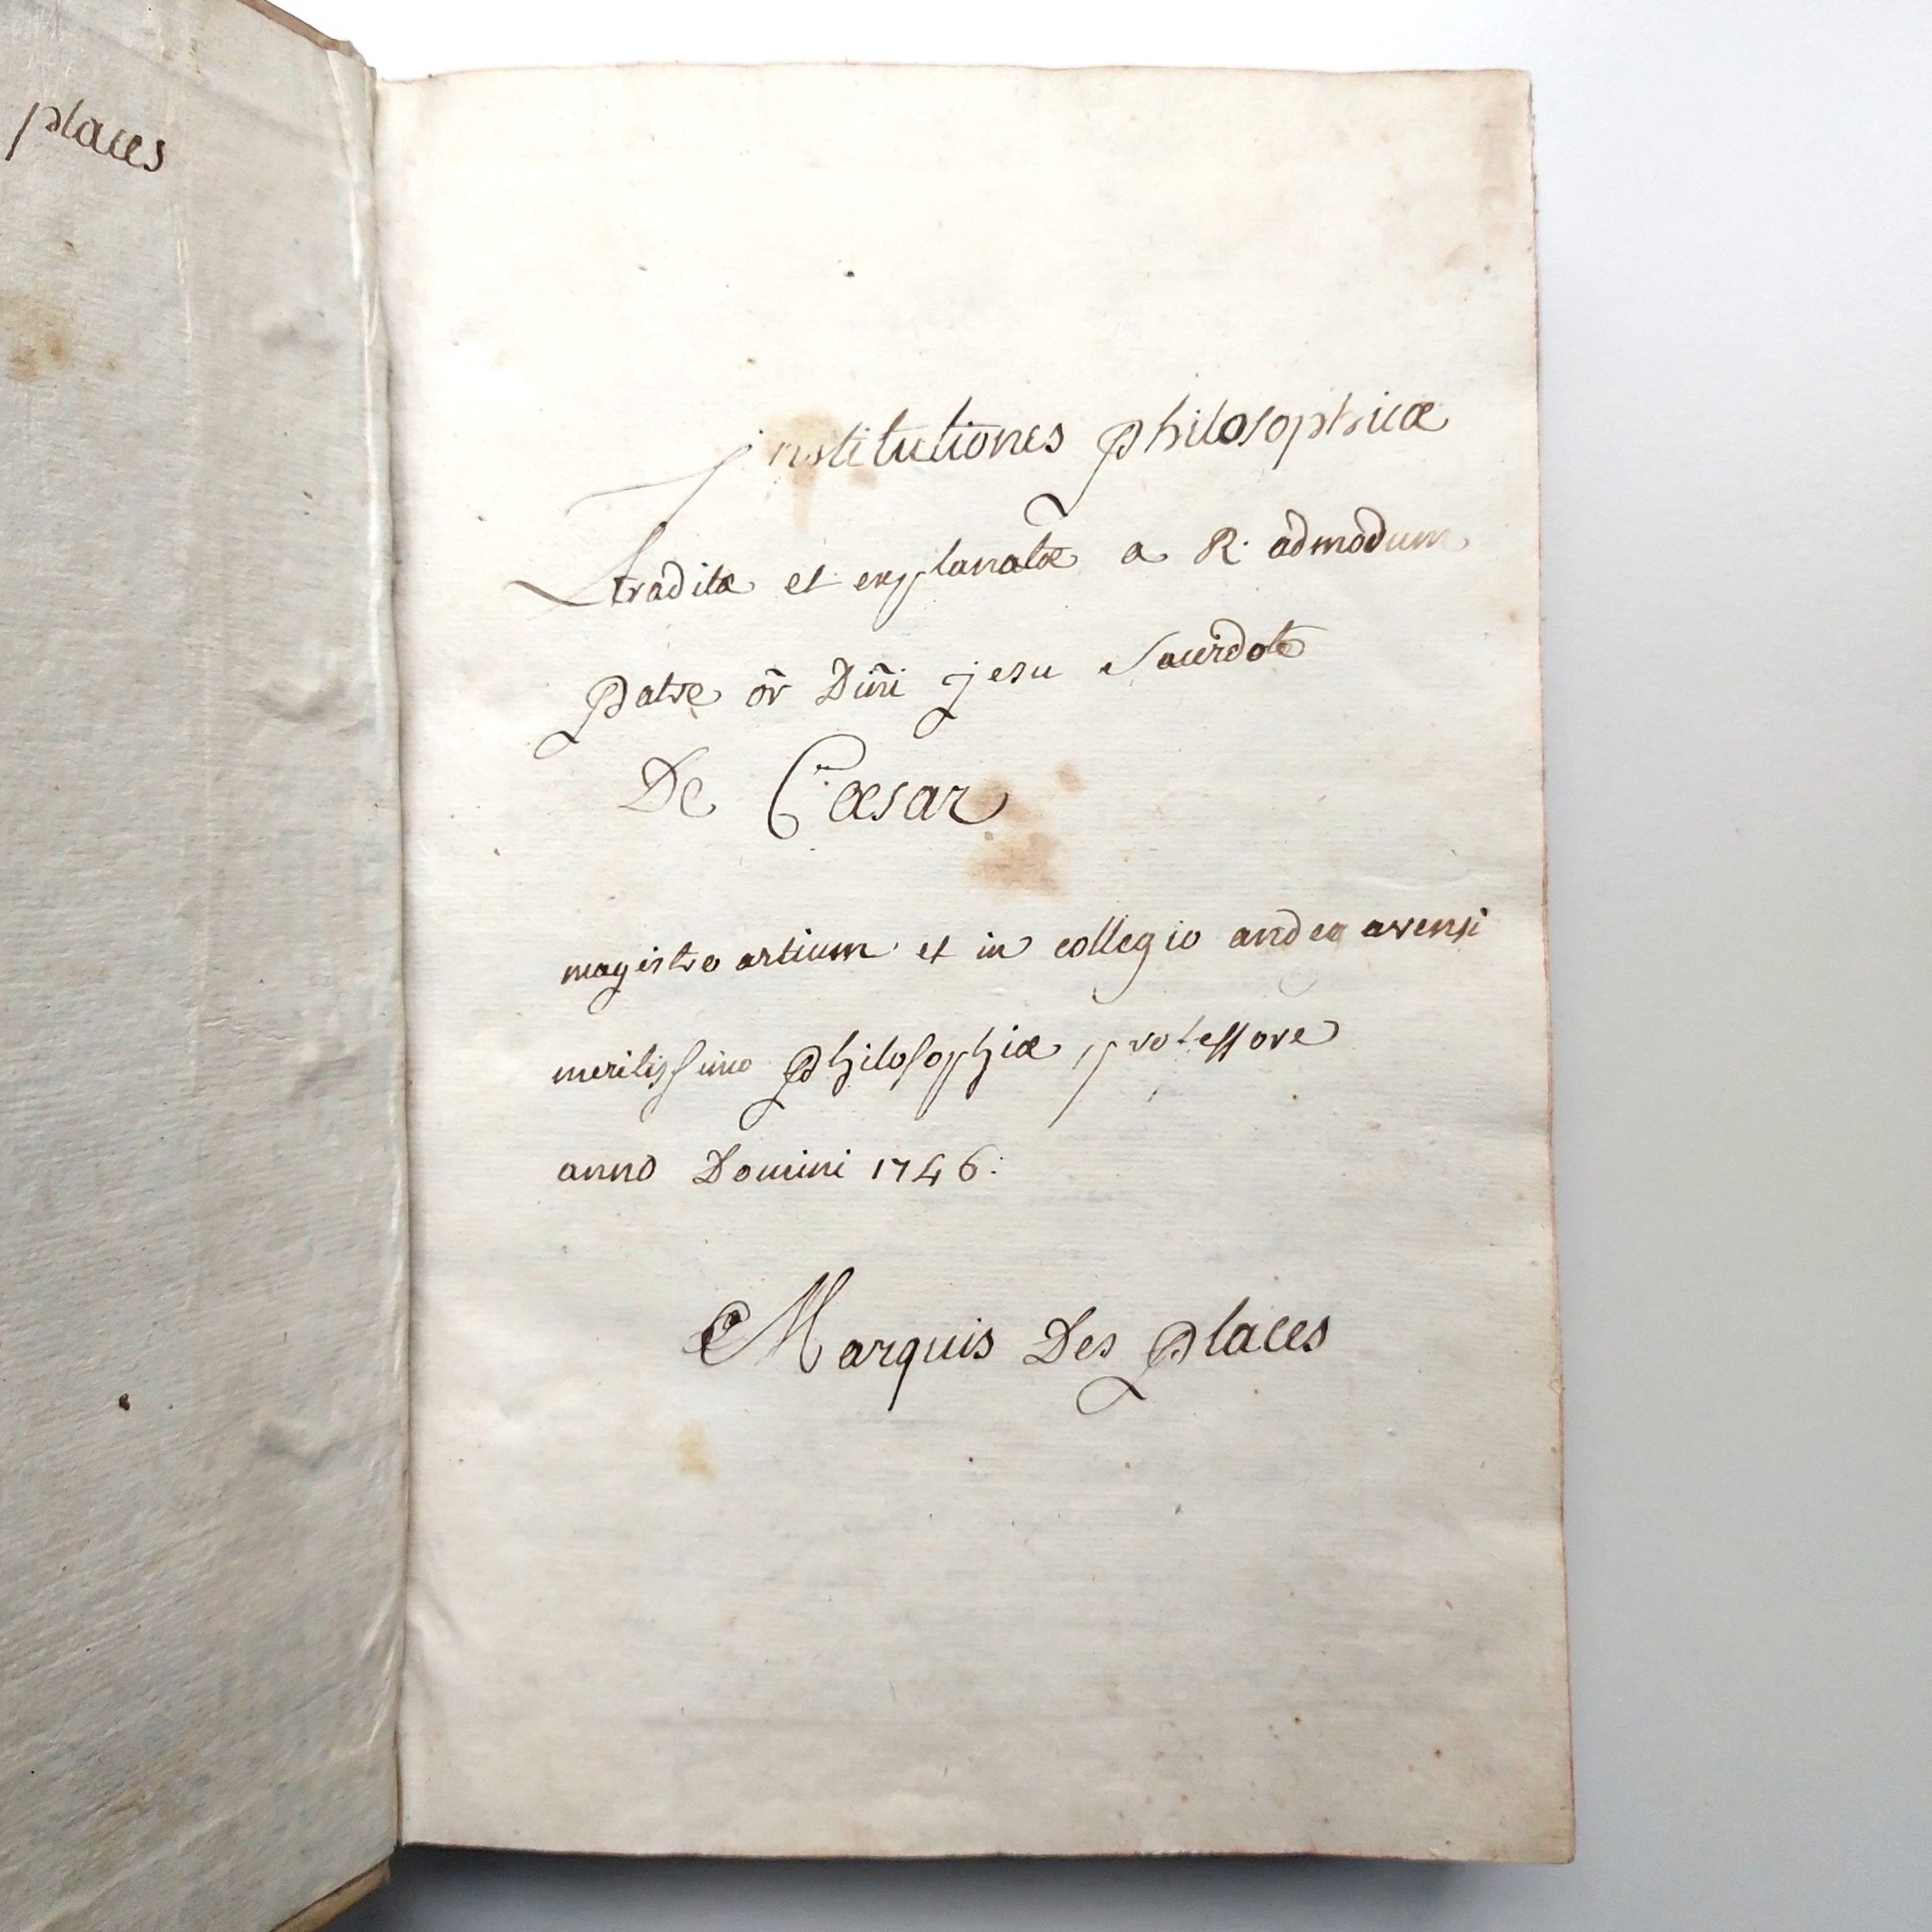 places
institutiones philosophicæ
traditæ et explanatæ a R. admodum
patre or̃ Dñi jesu Sacerdote
De Cæsar
magistro artium et in collegio andegavensi
meritissimo philosophiæ professore
anno Domini 1746.
Marquis Des places